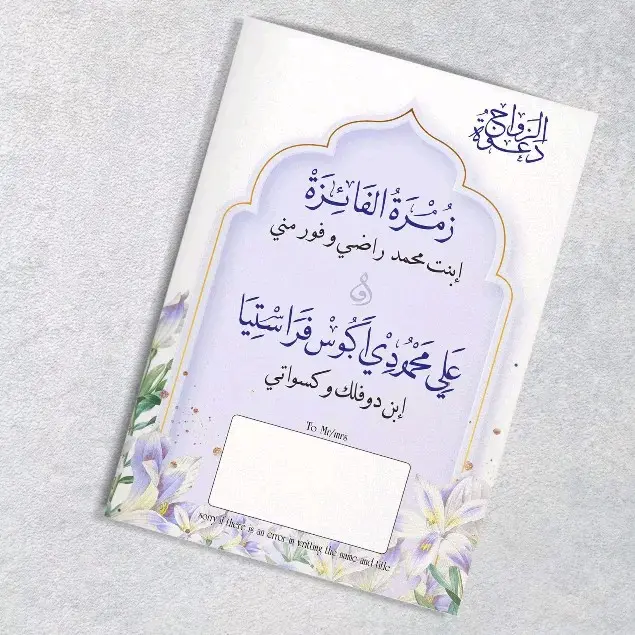 دعوة الزواج
زُمْرَةُ الفَائِزَةْ
إبنت محمد راضي و فور مني
و
عَلِي مَحْمُودِيْ أَكُوسْ فَرَاسْتِيَا
إبن دوفلك و كسواتي
To Mr/mrs
sorry if there is an error in writing the name and title